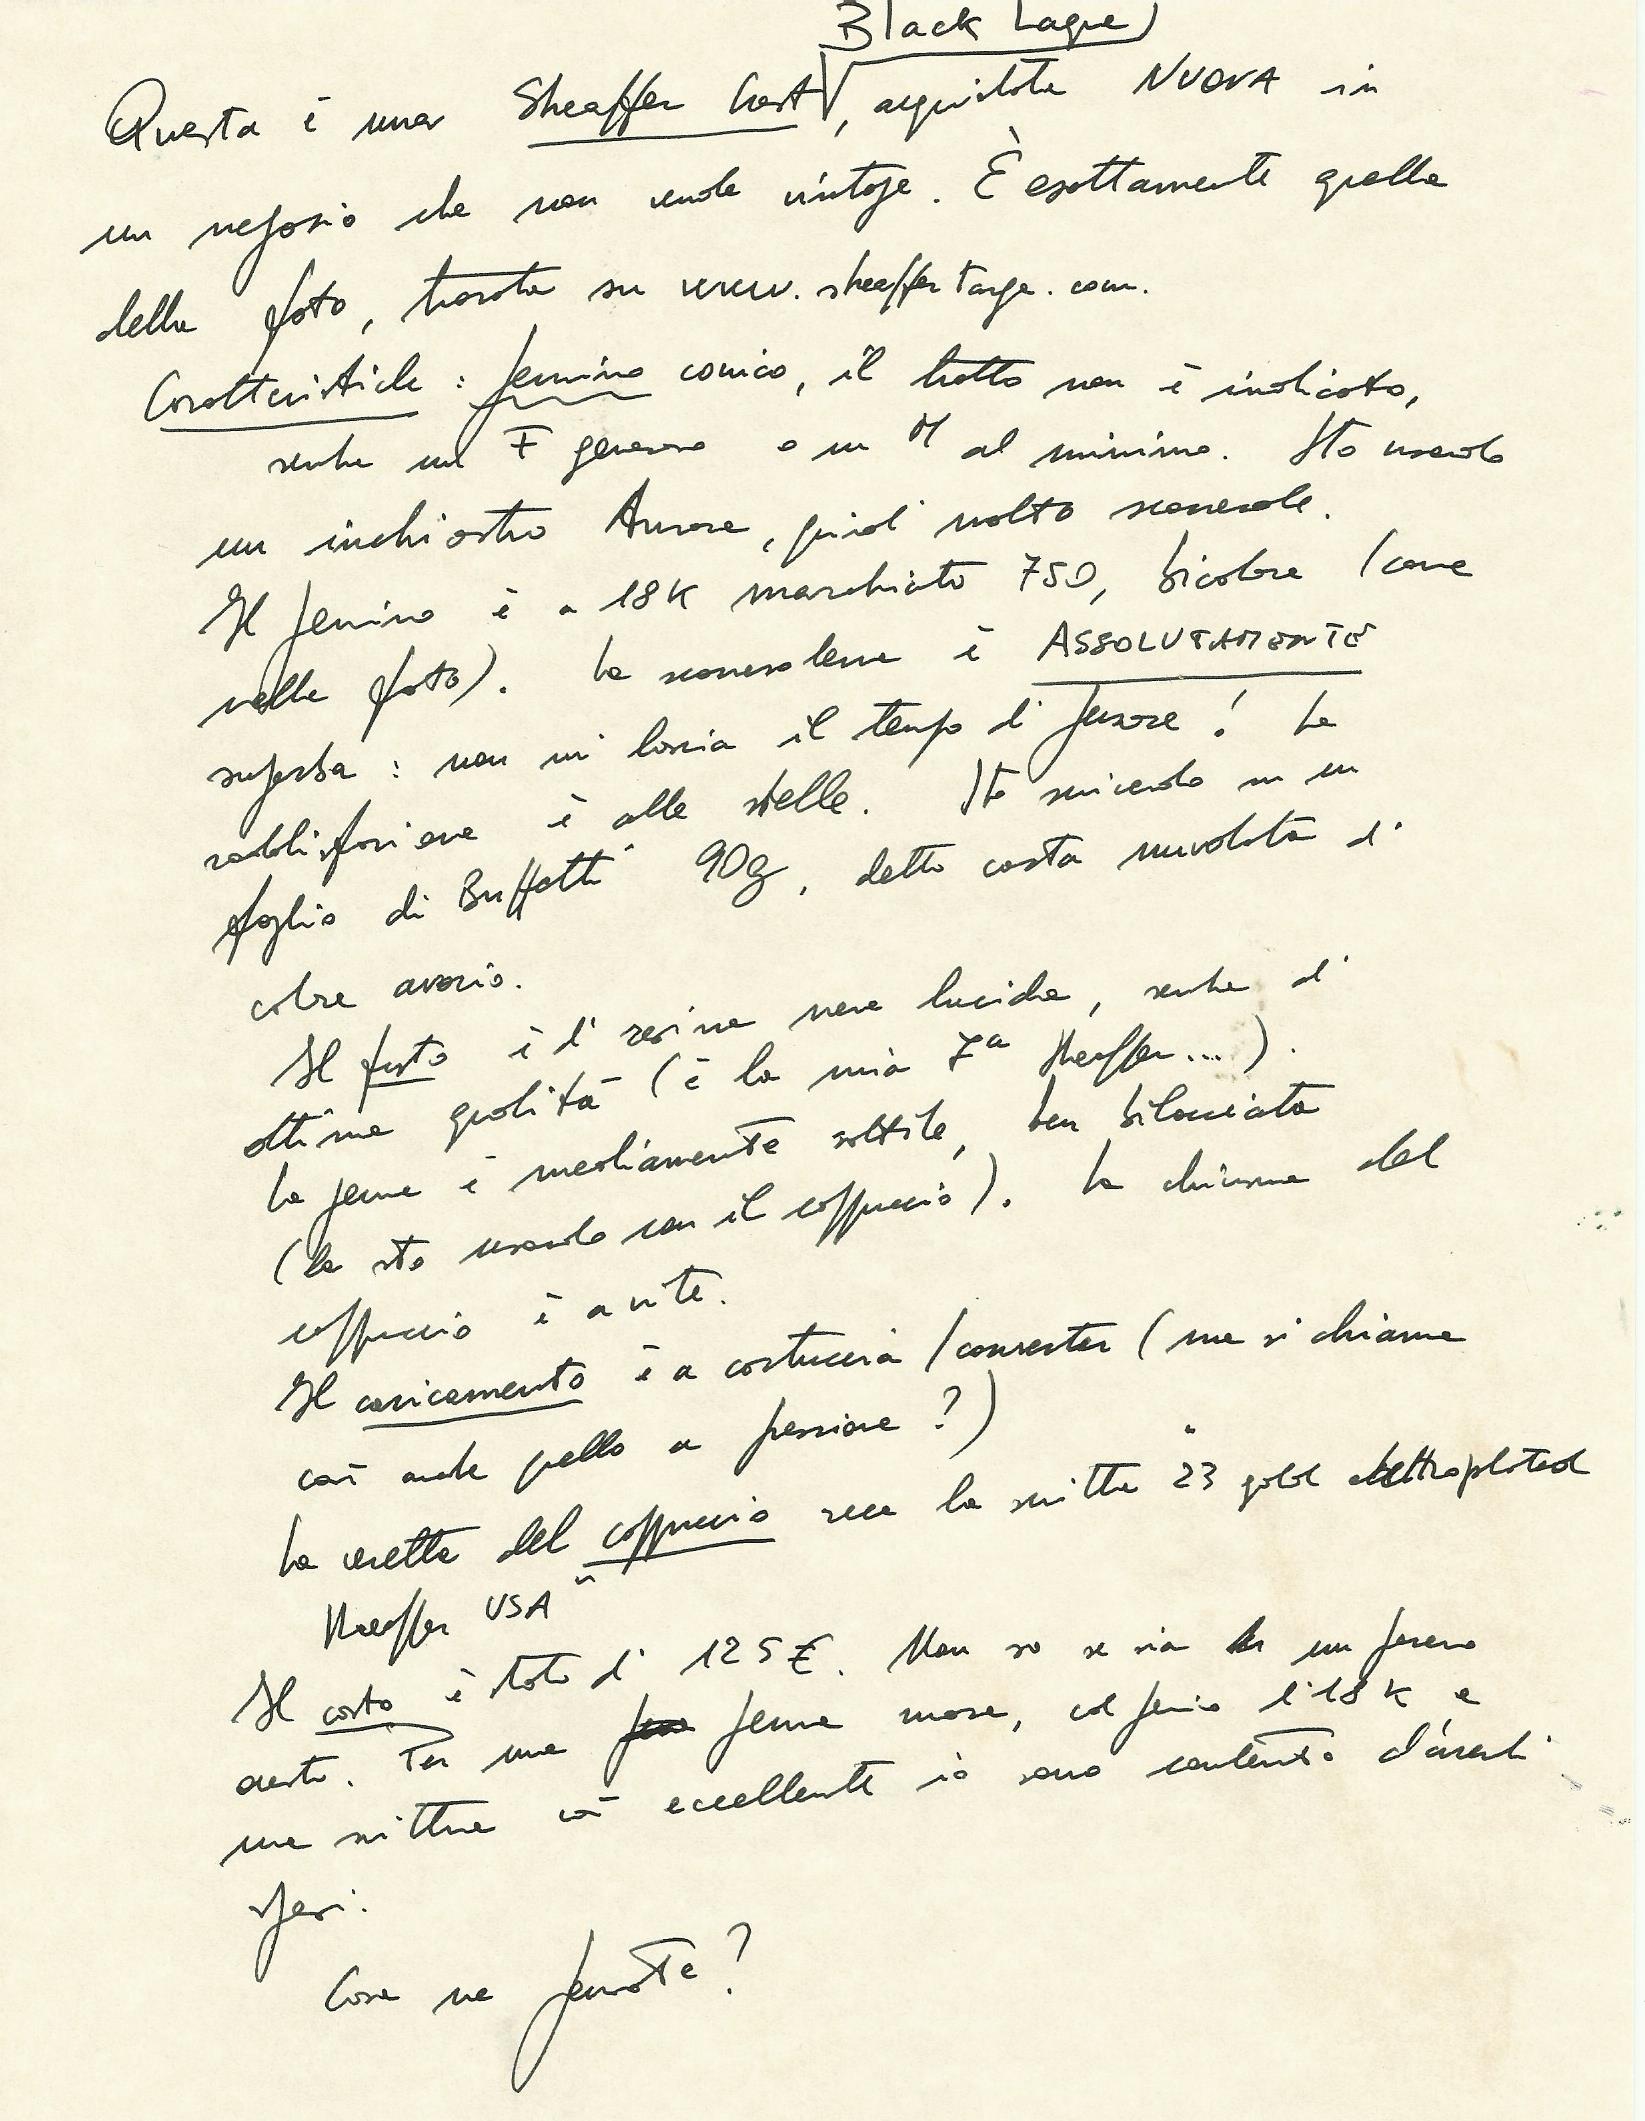 Black Laque
Questa è una Sheaffer Crest, acquistata NUOVA in
un negozio che non vende vintage. È esattamente quella
della foto, trovata su www.sheaffertarga.com.
Caratteristiche: pennino conico, il tratto non è indicato,
sembra un F generoso o un M al minimo. Sto usando
un inchiostro Aurora, quindi molto scorrevole.
Il pennino è a 18K marchiato 750, bicolore (come
nella foto). La scorrevolezza è ASSOLUTAMENTE
superba: non mi lascia il tempo di pensare! La
soddisfazione è alle stelle. Sto scrivendo su un
foglio di Buffetti 90g, detto carta nuvolata di
colore avorio.
Il fusto è di resina nera lucida, sembra di
ottima qualità (è la mia 7ª Sheaffer...).
La penna è mediamente sottile, ben bilanciata
(la sto usando con il cappuccio). La chiusura del
cappuccio è a vite.
Il caricamento è a cartuccia/converter (ma si chiama
così anche quello a pressione?)
La veretta del cappuccio reca la scritta "23 gold elettroplated
Sheaffer USA"
Il costo è stato di 125€. Non so se sia un prezzo
onesto. Per una penna nuova, col pennino di 18K e
una scrittura così eccellente io sono contento d'averli
spesi.
Cosa ne pensate?